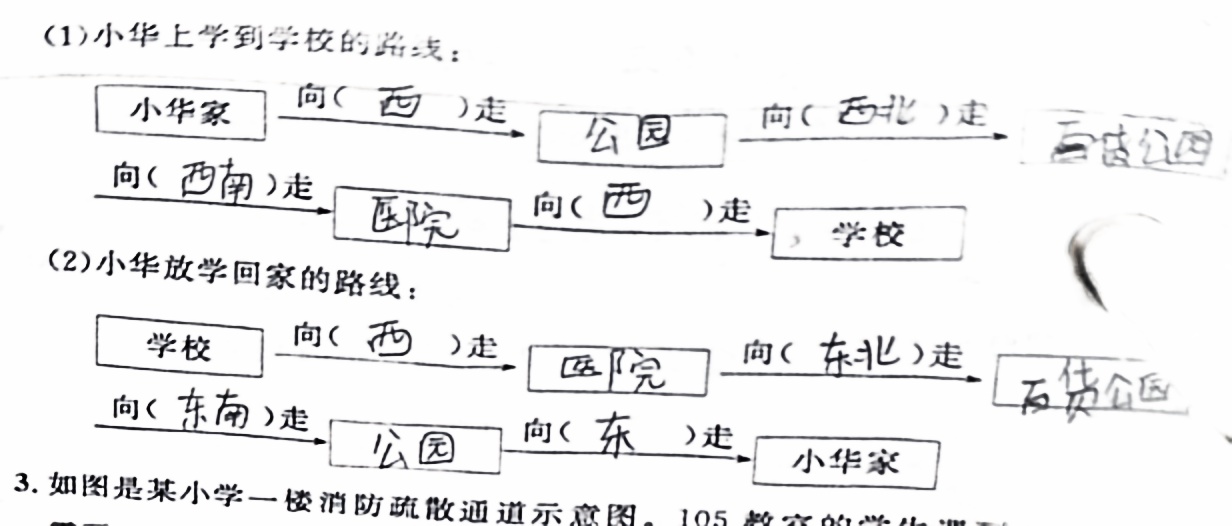 (1)小华上学到学校的路线：
小华家 向( 西 )走 公园 向( 西北 )走 百货公园
向( 西南 )走 医院 向( 西 )走 学校
(2)小华放学回家的路线：
学校 向( 西 )走 医院 向( 东北 )走 百货公园
向( 东南 )走 公园 向( 东 )走 小华家
3. 如图是某小学一楼消防疏散通道示意图。105 教室的学生遇到